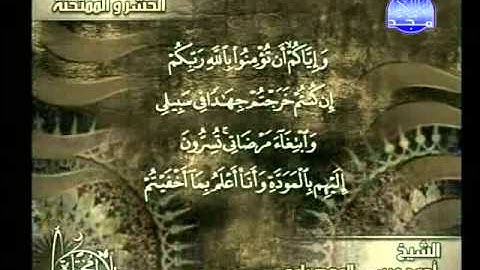 الحشر والممتحنة
مجد
وَإِيَّاكُمْ أَن تُؤْمِنُوا۟ بِٱللَّهِ رَبِّكُمْ
إِن كُنتُمْ خَرَجْتُمْ جِهَٰدًا فِى سَبِيلِى
وَٱبْتِغَآءَ مَرْضَاتِى ۚ تُسِرُّونَ
إِلَيْهِم بِٱلْمَوَدَّةِ وَأَنَا۠ أَعْلَمُ بِمَآ أَخْفَيْتُمْ
الشيخ